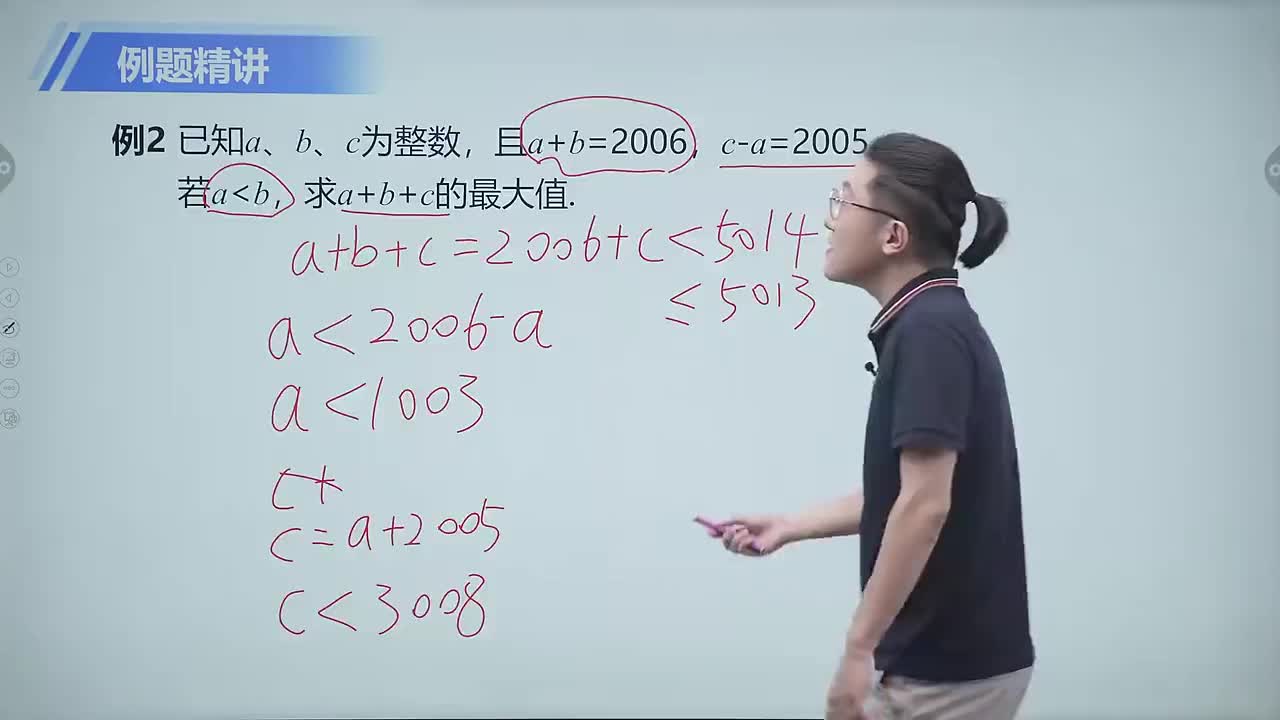 例题精讲
例2 已知a、b、c为整数，且a+b=2006，c-a=2005
若a<b，求a+b+c的最大值.
a+b+c=2006+c<5014
≤5013
a<2006-a
a<1003
c+
c=a+2005
c<3008